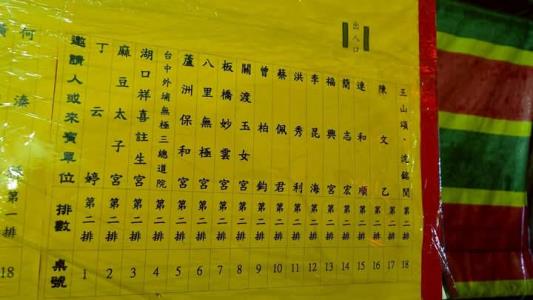 出入口
第一排
18
邀請人或來賓單位 排數 桌號
丁云婷 第二排 1
麻豆太子宮 第二排 2
湖口祥喜註生宮 第二排 3
台中外埔無極三總道院 第二排 4
蘆洲保和宮 第二排 5
八里無極宮 第二排 6
板橋妙雲宮 第二排 7
關渡玉女宮 第二排 8
曾柏鈞 第二排 9
蔡佩君 第二排 10
洪秀利 第二排 11
李昆海 第二排 12
福興宮 第二排 13
簡志宏 第二排 14
連和順 第二排 15
陳文乙 第二排 第二排 16 17
王山頌、沈銘閔 第二排 18